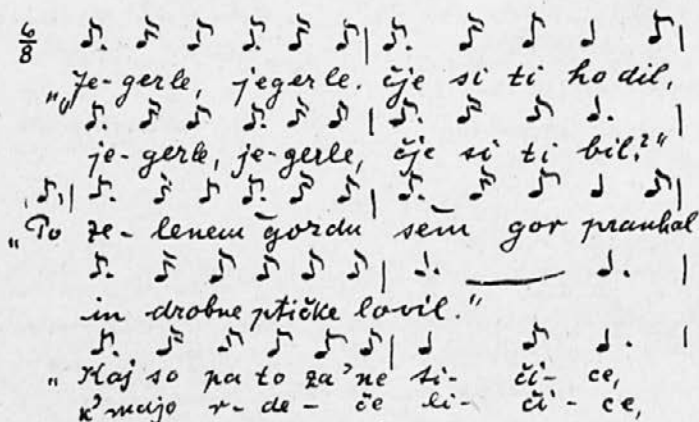 6/8
„Je-gerle, jegerle, čje si ti hodil,
je-gerle, je-gerle, čje si ti bil?"
„Po ze-lenem gozdu sem gor pranhal
in drobne ptičke lovil."
„Kaj so pa to za 'ne ti- či- ce,
k' majo r-de- če li- či- ce,